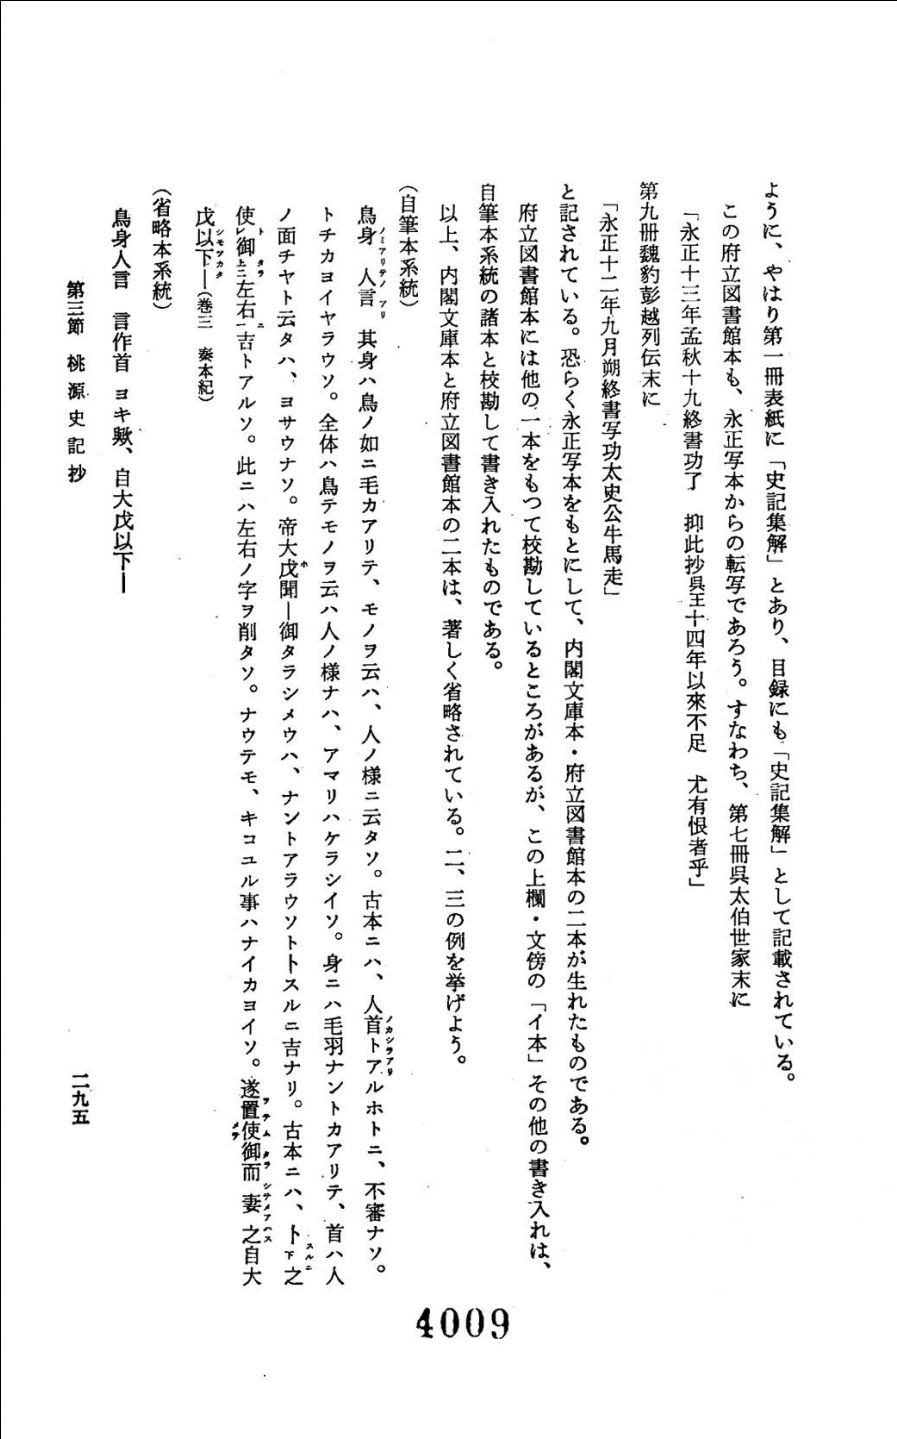 ように、やはり第一冊表紙に「史記集解」とあり、目録にも「史記集解」として記載されている。
この府立図書館本も、永正写本からの転写であろう。すなわち、第七冊呉太伯世家末に
「永正十三年孟秋十九終書功了　抑此抄呉王十四年以來不足　尤有恨者乎」
第九冊魏豹彭越列伝末に
「永正十二年九月朔終書写功太史公牛馬走」
と記されている。恐らく永正写本をもとにして、内閣文庫本・府立図書館本の二本が生れたものである。
府立図書館本には他の一本をもつて校勘しているところがあるが、この上欄・文傍の「イ本」その他の書き入れは、
自筆本系統の諸本と校勘して書き入れたものである。
以上、内閣文庫本と府立図書館本の二本は、著しく省略されている。二、三の例を挙げよう。
（自筆本系統）
鳥身　人言　其身ハ鳥ノ如ニ毛カアリテ、モノヲ云ハ、人ノ様ニ云タソ。古本ニハ、人首トアルホトニ、不審ナソ。
トチカヨイヤラウソ。全体ハ鳥テモノヲ云ハ人ノ様ナハ、アマリハケラシイソ。身ニハ毛羽ナントカアリテ、首ハ人
ノ面チヤト云タハ、ヨサウナソ。帝大戊聞―御タラシメウハ、ナントアラウソトトスルニ吉ナリ。古本ニハ、卜下之
使レ御上三左右一吉トアルソ。此ニハ左右ノ字ヲ削タソ。ナウテモ、キコユル事ハナイカヨイソ。遂置使御而　妻　之自大
戊以下―（巻三　秦本紀）
（省略本系統）
鳥身人言　言作首　ヨキ歟、自大戊以下―
第三節　桃源史記抄
二九五
4009